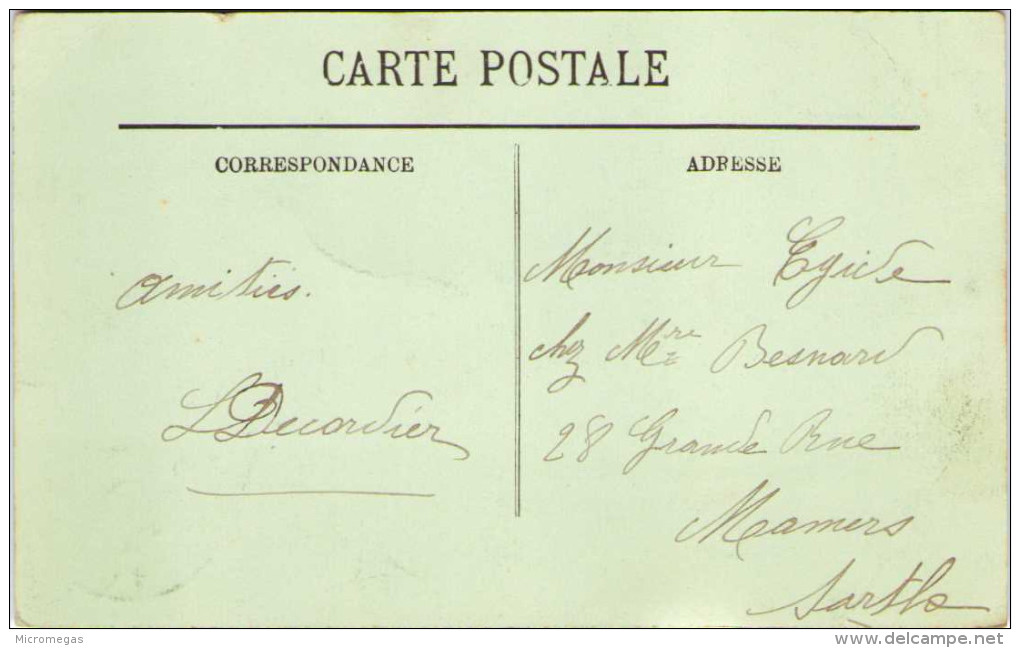 CARTE POSTALE
CORRESPONDANCE
Amitiés.
L Decordier
ADRESSE
Monsieur Egide
chez Mre Besnard
28 Grande Rue
Mamers
Sarthe
Micromegas
www.delcampe.net